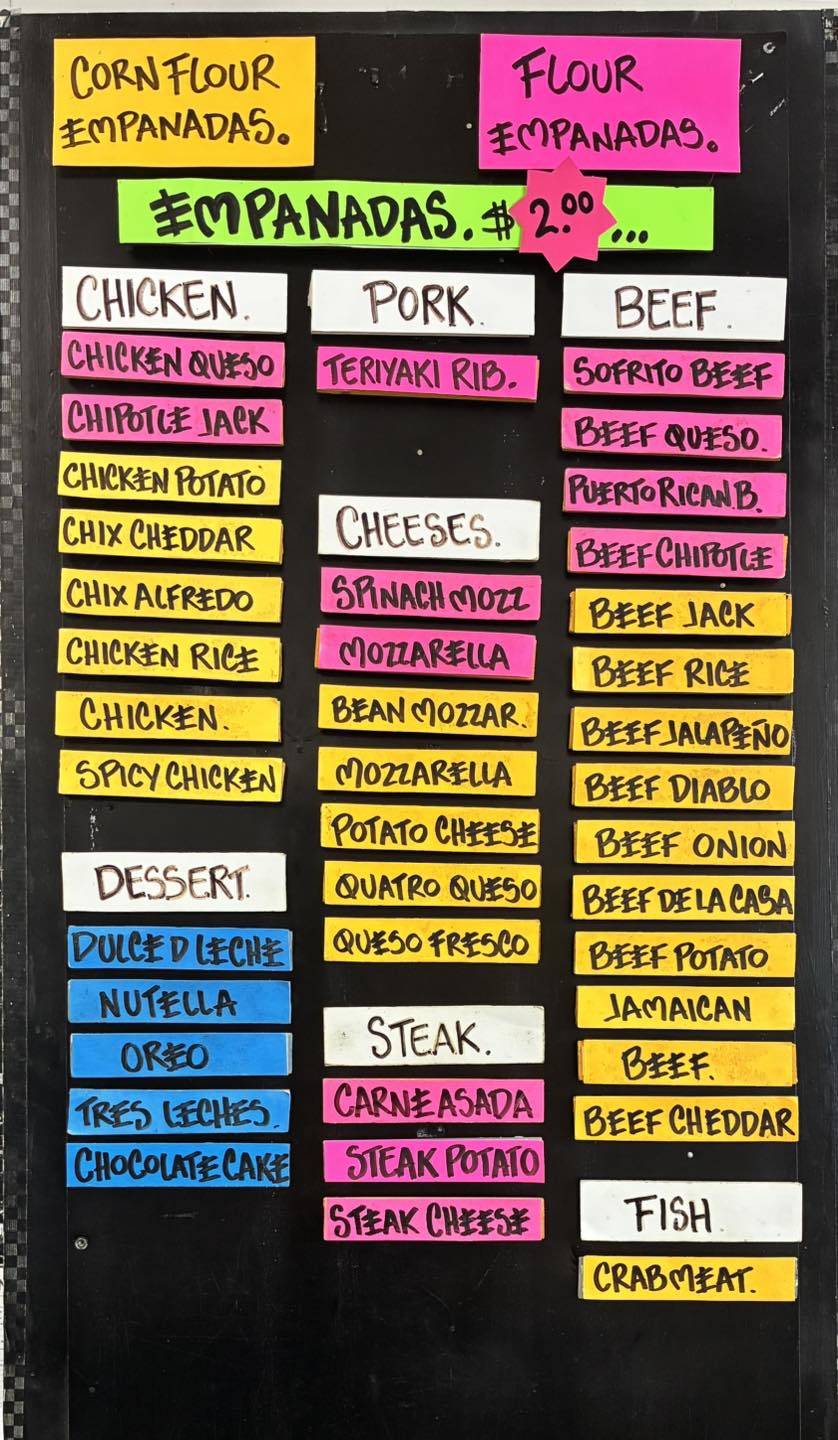 CORN FLOUR
EMPANADAS.
FLOUR
EMPANADAS.
EMPANADAS. $2.00...
CHICKEN.
CHICKEN QUESO
CHIPOTLE JACK
CHICKEN POTATO
CHIX CHEDDAR
CHIX ALFREDO
CHICKEN RICE
CHICKEN.
SPICY CHICKEN
DESSERT.
DULCE D LECHE
NUTELLA
OREO
TRES LECHES.
CHOCOLATE CAKE
PORK.
TERIYAKI RIB.
CHEESES.
SPINACH MOZZ
MOZZARELLA
BEAN MOZZAR.
MOZZARELLA
POTATO CHEESE
QUATRO QUESO
QUESO FRESCO
STEAK.
CARNE ASADA
STEAK POTATO
STEAK CHEESE
BEEF.
SOFRITO BEEF
BEEF QUESO.
PUERTO RICAN B.
BEEF CHIPOTLE
BEEF JACK
BEEF RICE
BEEF JALAPEÑO
BEEF DIABLO
BEEF ONION
BEEF DE LA CASA
BEEF POTATO
JAMAICAN
BEEF.
BEEF CHEDDAR
FISH
CRABMEAT.